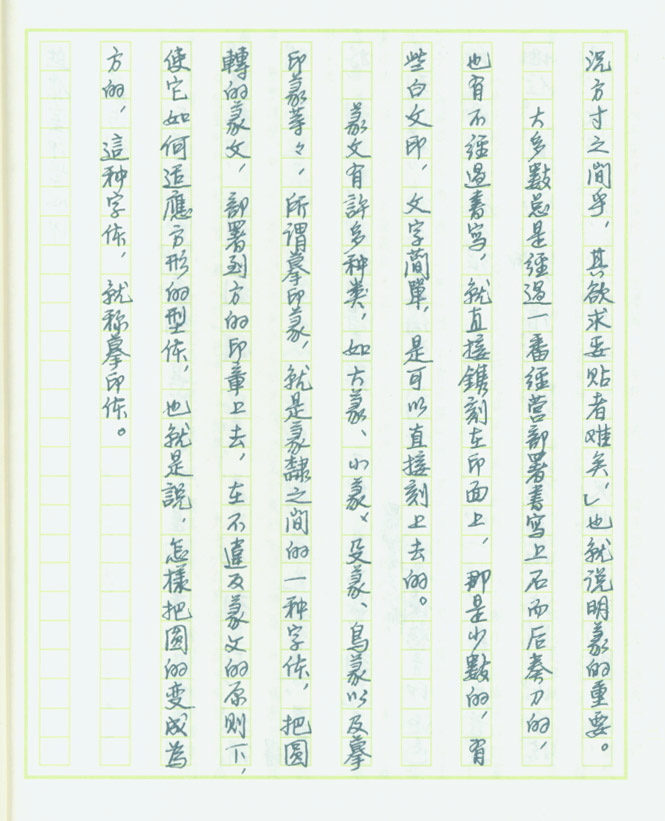 况方寸之間乎，其欲求妥贴者难矣，」也就说明篆的重要。
大多數总是經過一番經营部署書寫上石而后奏刀的，
也有不經過書寫，就直接鐫刻在印面上，那是少數的，有
些白文印，文字简單，是可以直接刻上去的。
篆文有許多种类，如大篆、小篆、殳篆、鳥篆以及摹
印篆等々，所謂摹印篆，就是篆隸之间的一种字体，把圆
轉的篆文，部署到方的印章上去，在不違反篆文的原则下，
使它如何适應方形的型体，也就是說，怎樣把圆的变成為
方的，這种字体，就称摹印体。